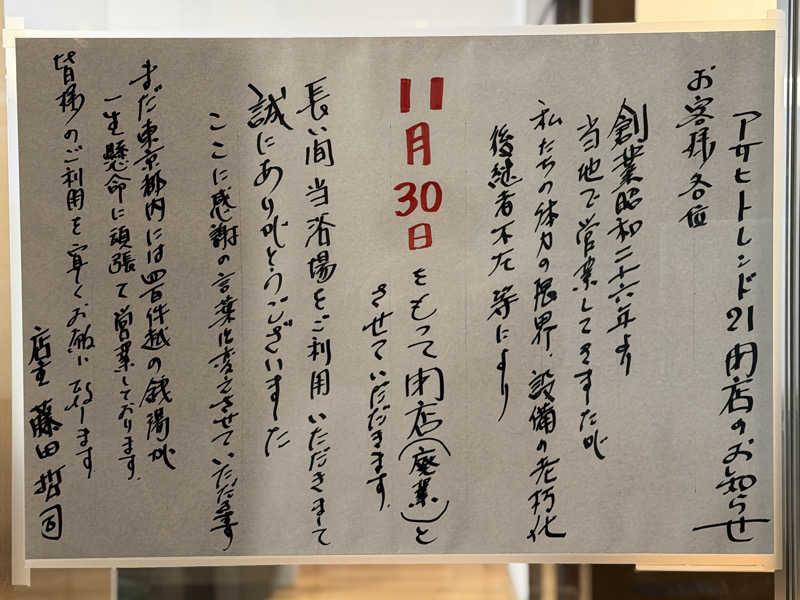 アサヒトレンド21閉店のお知らせ
お客様各位
創業昭和二十六年より
当地で営業してきましたが
私たちの体力の限界、設備の老朽化
後継者不在等により
11月30日をもって閉店(廃業)と
させていただきます。
長い間当浴場をご利用いただきまして
誠にありがとうございました
ここに感謝の言葉に変えさせていただきます
まだ東京都内には四百件越の銭湯が
一生懸命に頑張て営業しております。
皆様のご利用を宜しくお願い致します
店主 藤田哲司